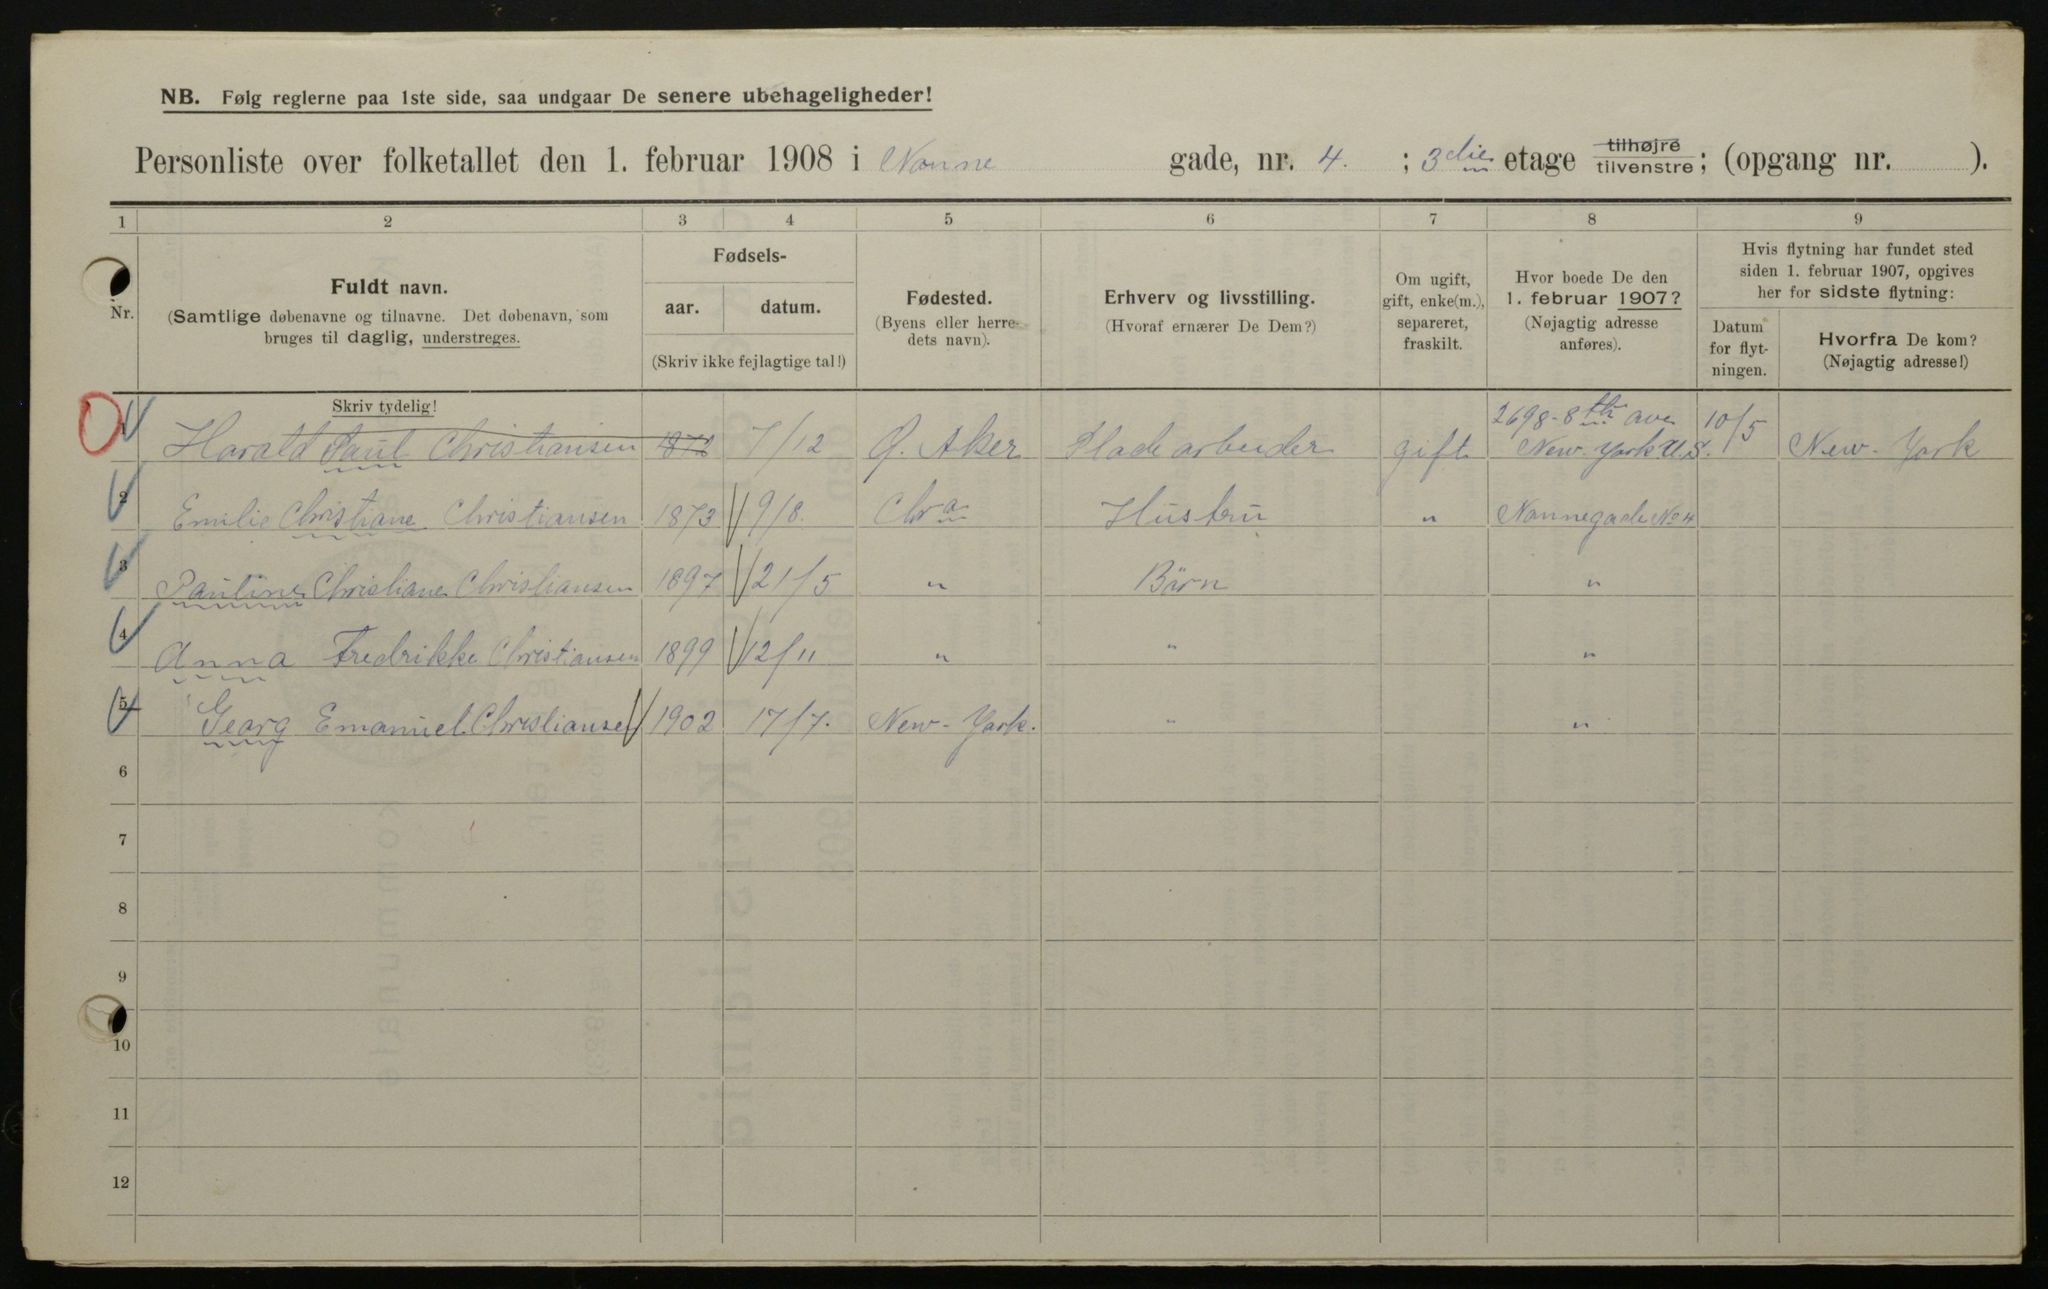 NB. Følg reglerne paa 1ste side, saa undgaar De senere ubehageligheder!
Personliste over folketallet den 1. februar 1908 i Nonne gade, nr. 4. ; 3die etage tilhøjre tilvenstre; (opgang nr. ).
1 2 3 4 5 6 7 8 9
Nr.
Fuldt navn.
(Samtlige døbenavne og tilnavne. Det døbenavn, som
bruges til daglig, understreges.
Skriv tydelig!
Fødsels-
aar. datum.
(Skriv ikke fejlagtige tal!)
Fødested.
(Byens eller herre-
dets navn).
Erhverv og livsstilling.
(Hvoraf ernærer De Dem?)
Om ugift,
gift, enke(m.),
separeret,
fraskilt.
Hvor boede De den
1. februar 1907?
(Nøjagtig adresse
anføres).
Hvis flytning har fundet sted
siden 1. februar 1907, opgives
her for sidste flytning:
Datum
for flyt-
ningen.
Hvorfra De kom?
(Nøjagtig adresse!)
2698-8th ave
1 Harald Paul Christiansen 7/12 Ø. Aker gift New-York U.S. 10/5 New-York
2 Emilie Christiane Christiansen 1873 9/8. Chra Hustru " Nonnegade No 4
3 Pauline Christiane Christiansen 1897 21/5 " Börn "
4 Anna Fredrikke Christiansen 1899 12/11 " " "
5 Georg Emanuel Christiansen 1902 17/7. New-York. " "
6
7
8
9
10
11
12